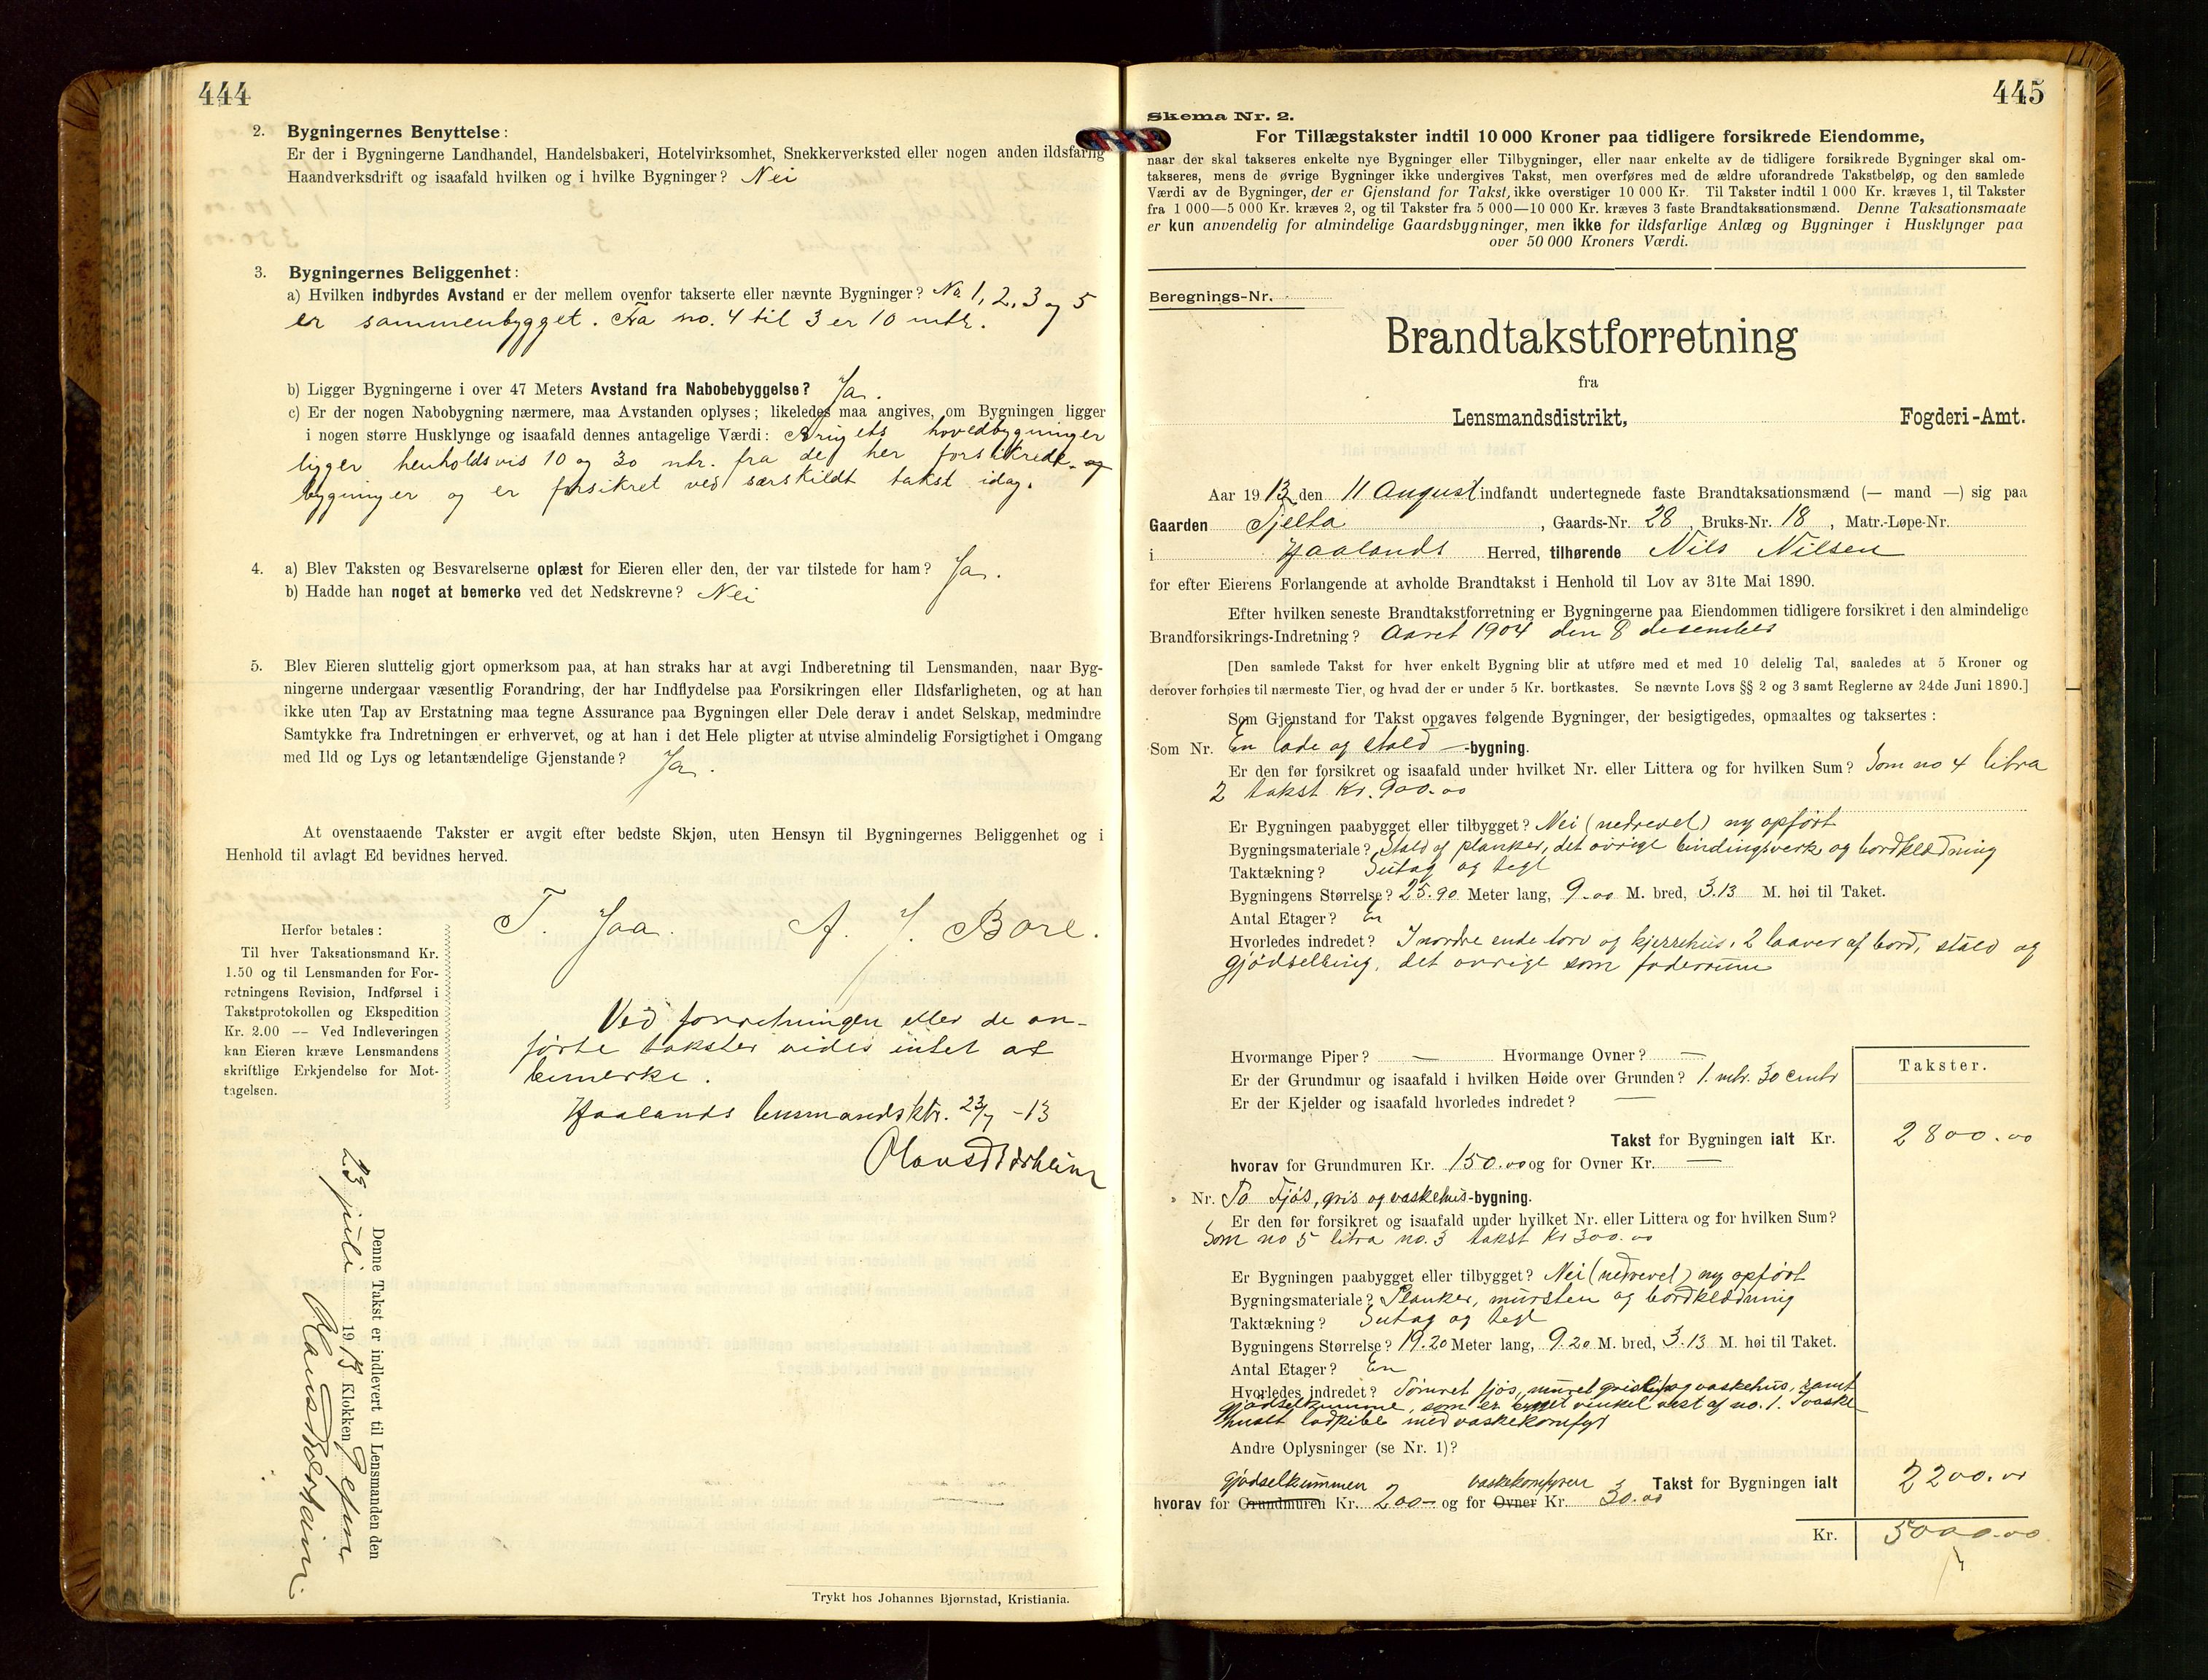 444
2. Bygningernes Benyttelse:
Er der i Bygningerne Landhandel, Handelsbakeri, Hotelvirksomhet, Snekkerverksted eller nogen anden ildsfarlig
Haandverksdrift og isaafald hvilken og i hvilke Bygninger? Nei
3. Bygningernes Beliggenhet:
a) Hvilken indbyrdes Avstand er der mellem ovenfor takserte eller nævnte Bygninger? No. 1, 2, 3 og 5
er sammenbygget. Fra no. 4 til 3 er 10 mtr.
b) Ligger Bygningerne i over 47 Meters Avstand fra Nabobebyggelse? Ja.
c) Er der nogen Nabobygning nærmere, maa Avstanden oplyses; likeledes maa angives, om Bygningen ligger
i nogen større Husklynge og isaafald dennes antagelige Værdi: Brugets hovedbygninger
ligger henholdsvis 10 og 30 mtr. fra de her forsikrede og
bygninger og er forsikret ved særskildt takst idag.
4. a) Blev Taksten og Besvarelserne oplæst for Eieren eller den, der var tilstede for ham? Ja.
b) Hadde han noget at bemerke ved det Nedskrevne? Nei
5. Blev Eieren sluttelig gjort opmerksom paa, at han straks har at avgi Indberetning til Lensmanden, naar Byg-
ningerne undergaar væsentlig Forandring, der har Indflydelse paa Forsikringen eller Ildsfarligheten, og at han
ikke uten Tap av Erstatning maa tegne Assurance paa Bygningen eller Dele derav i andet Selskap, medmindre
Samtykke fra Indretningen er erhvervet, og at han i det Hele pligter at utvise almindelig Forsigtighet i Omgang
med Ild og Lys og letantændelige Gjenstande? Ja.
At ovenstaaende Takster er avgit efter bedste Skjøn, uten Hensyn til Bygningernes Beliggenhet og i
Henhold til avlagt Ed bevidnes herved.
T. Jaa. A. J. Bore.
Herfor betales:
Til hver Taksationsmand Kr.
1.50 og til Lensmanden for For-
retningens Revision, Indførsel i
Takstprotokollen og Ekspedition
Kr. 2.00 — Ved Indleveringen
kan Eieren kræve Lensmandens
skriftlige Erkjendelse for Mot-
tagelsen.
Ved forretningen eller de an-
førte takster vides intet at
bemerke.
Haalands lensmandsktr. 23/7 -13
Denne Takst er indlevert til Lensmanden den
23 juli 1913 Klokken
Trykt hos Johannes Bjørnstad, Kristiania.
445
Skema Nr. 2.
For Tillægstakster indtil 10 000 Kroner paa tidligere forsikrede Eiendomme,
naar der skal takseres enkelte nye Bygninger eller Tilbygninger, eller naar enkelte av de tidligere forsikrede Bygninger skal om-
takseres, mens de øvrige Bygninger ikke undergives Takst, men overføres med de ældre uforandrede Takstbeløp, og den samlede
Værdi av de Bygninger, der er Gjenstand for Takst, ikke overstiger 10 000 Kr. Til Takster indtil 1 000 Kr. kræves 1, til Takster
fra 1 000—5 000 Kr. kræves 2, og til Takster fra 5 000—10 000 Kr. kræves 3 faste Brandtaksationsmænd. Denne Taksationsmaate
er kun anvendelig for almindelige Gaardsbygninger, men ikke for ildsfarlige Anlæg og Bygninger i Husklynger paa
over 50 000 Kroners Værdi.
Beregnings-Nr.
Brandtakstforretning
fra
Lensmandsdistrikt, Fogderi-Amt.
Aar 1913 den 11 August indfandt undertegnede faste Brandtaksationsmænd (— mand —) sig paa
Gaarden Tjelta, Gaards-Nr. 28, Bruks-Nr. 18, Matr.-Løpe-Nr.
i Haalands Herred, tilhørende Nils Nilsen
for efter Eierens Forlangende at avholde Brandtakst i Henhold til Lov av 31te Mai 1890.
Efter hvilken seneste Brandtakstforretning er Bygningerne paa Eiendommen tidligere forsikret i den almindelige
Brandforsikrings-Indretning? Aaret 1904 den 8 desember
[Den samlede Takst for hver enkelt Bygning blir at utføre med et med 10 delelig Tal, saaledes at 5 Kroner og
derover forhøies til nærmeste Tier, og hvad der er under 5 Kr. bortkastes. Se nævnte Lovs §§ 2 og 3 samt Reglerne av 24de Juni 1890.]
Som Gjenstand for Takst opgaves følgende Bygninger, der besigtigedes, opmaaltes og taksertes:
Som Nr. En lade og stald -bygning.
Er den før forsikret og isaafald under hvilket Nr. eller Littera og for hvilken Sum? Som no 4 litra
2 takst Kr. 900.00
Er Bygningen paabygget eller tilbygget? Nei (nedrevet) ny opført
Bygningsmateriale? Stald af planker, det øvrige bindingsverk og bordklædning
Taktækning? Sutag og tegl
Bygningens Størrelse? 25.90 Meter lang, 9.00 M. bred, 3.13 M. høi til Taket.
Antal Etager? En
Hvorledes indredet? I nordre ende torv og kjerrehus, 2 laaver af bord, stald og
gjødselbing, det øvrige som foderrum
Hvormange Piper? — Hvormange Ovner? —
Er der Grundmur og isaafald i hvilken Høide over Grunden? 1. mtr. 30 cmtr
Er der Kjelder og isaafald hvorledes indredet? —
Takster.
Takst for Bygningen ialt Kr. 2800.00
hvorav for Grundmuren Kr. 150.00 og for Ovner Kr. —
Nr. To Fjøs, gris og vaskehus-bygning.
Er den før forsikret og isaafald under hvilket Nr. eller Littera og for hvilken Sum?
Som no 5 litra no. 3 takst Kr 300.00
Er Bygningen paabygget eller tilbygget? Nei (nedrevet) ny opført
Bygningsmateriale? Planker, mursten og bordklædning
Taktækning? Sutag og tegl
Bygningens Størrelse? 19.20 Meter lang, 9.20 M. bred, 3.13 M. høi til Taket.
Antal Etager? En
Hvorledes indredet? Tømret fjøs, muret grisehus og vaskehus, samt
gjødselkumme, som er bygget i vinkel vest af no. 1. I vaske
huset med vaskekomfyr
Andre Oplysninger (se Nr. 1)?
gjødselkummen vaskekomfyren Takst for Bygningen ialt 2200.00
hvorav for Grundmuren Kr. 200- og for Ovner Kr. 30.00
Kr. 5000.00